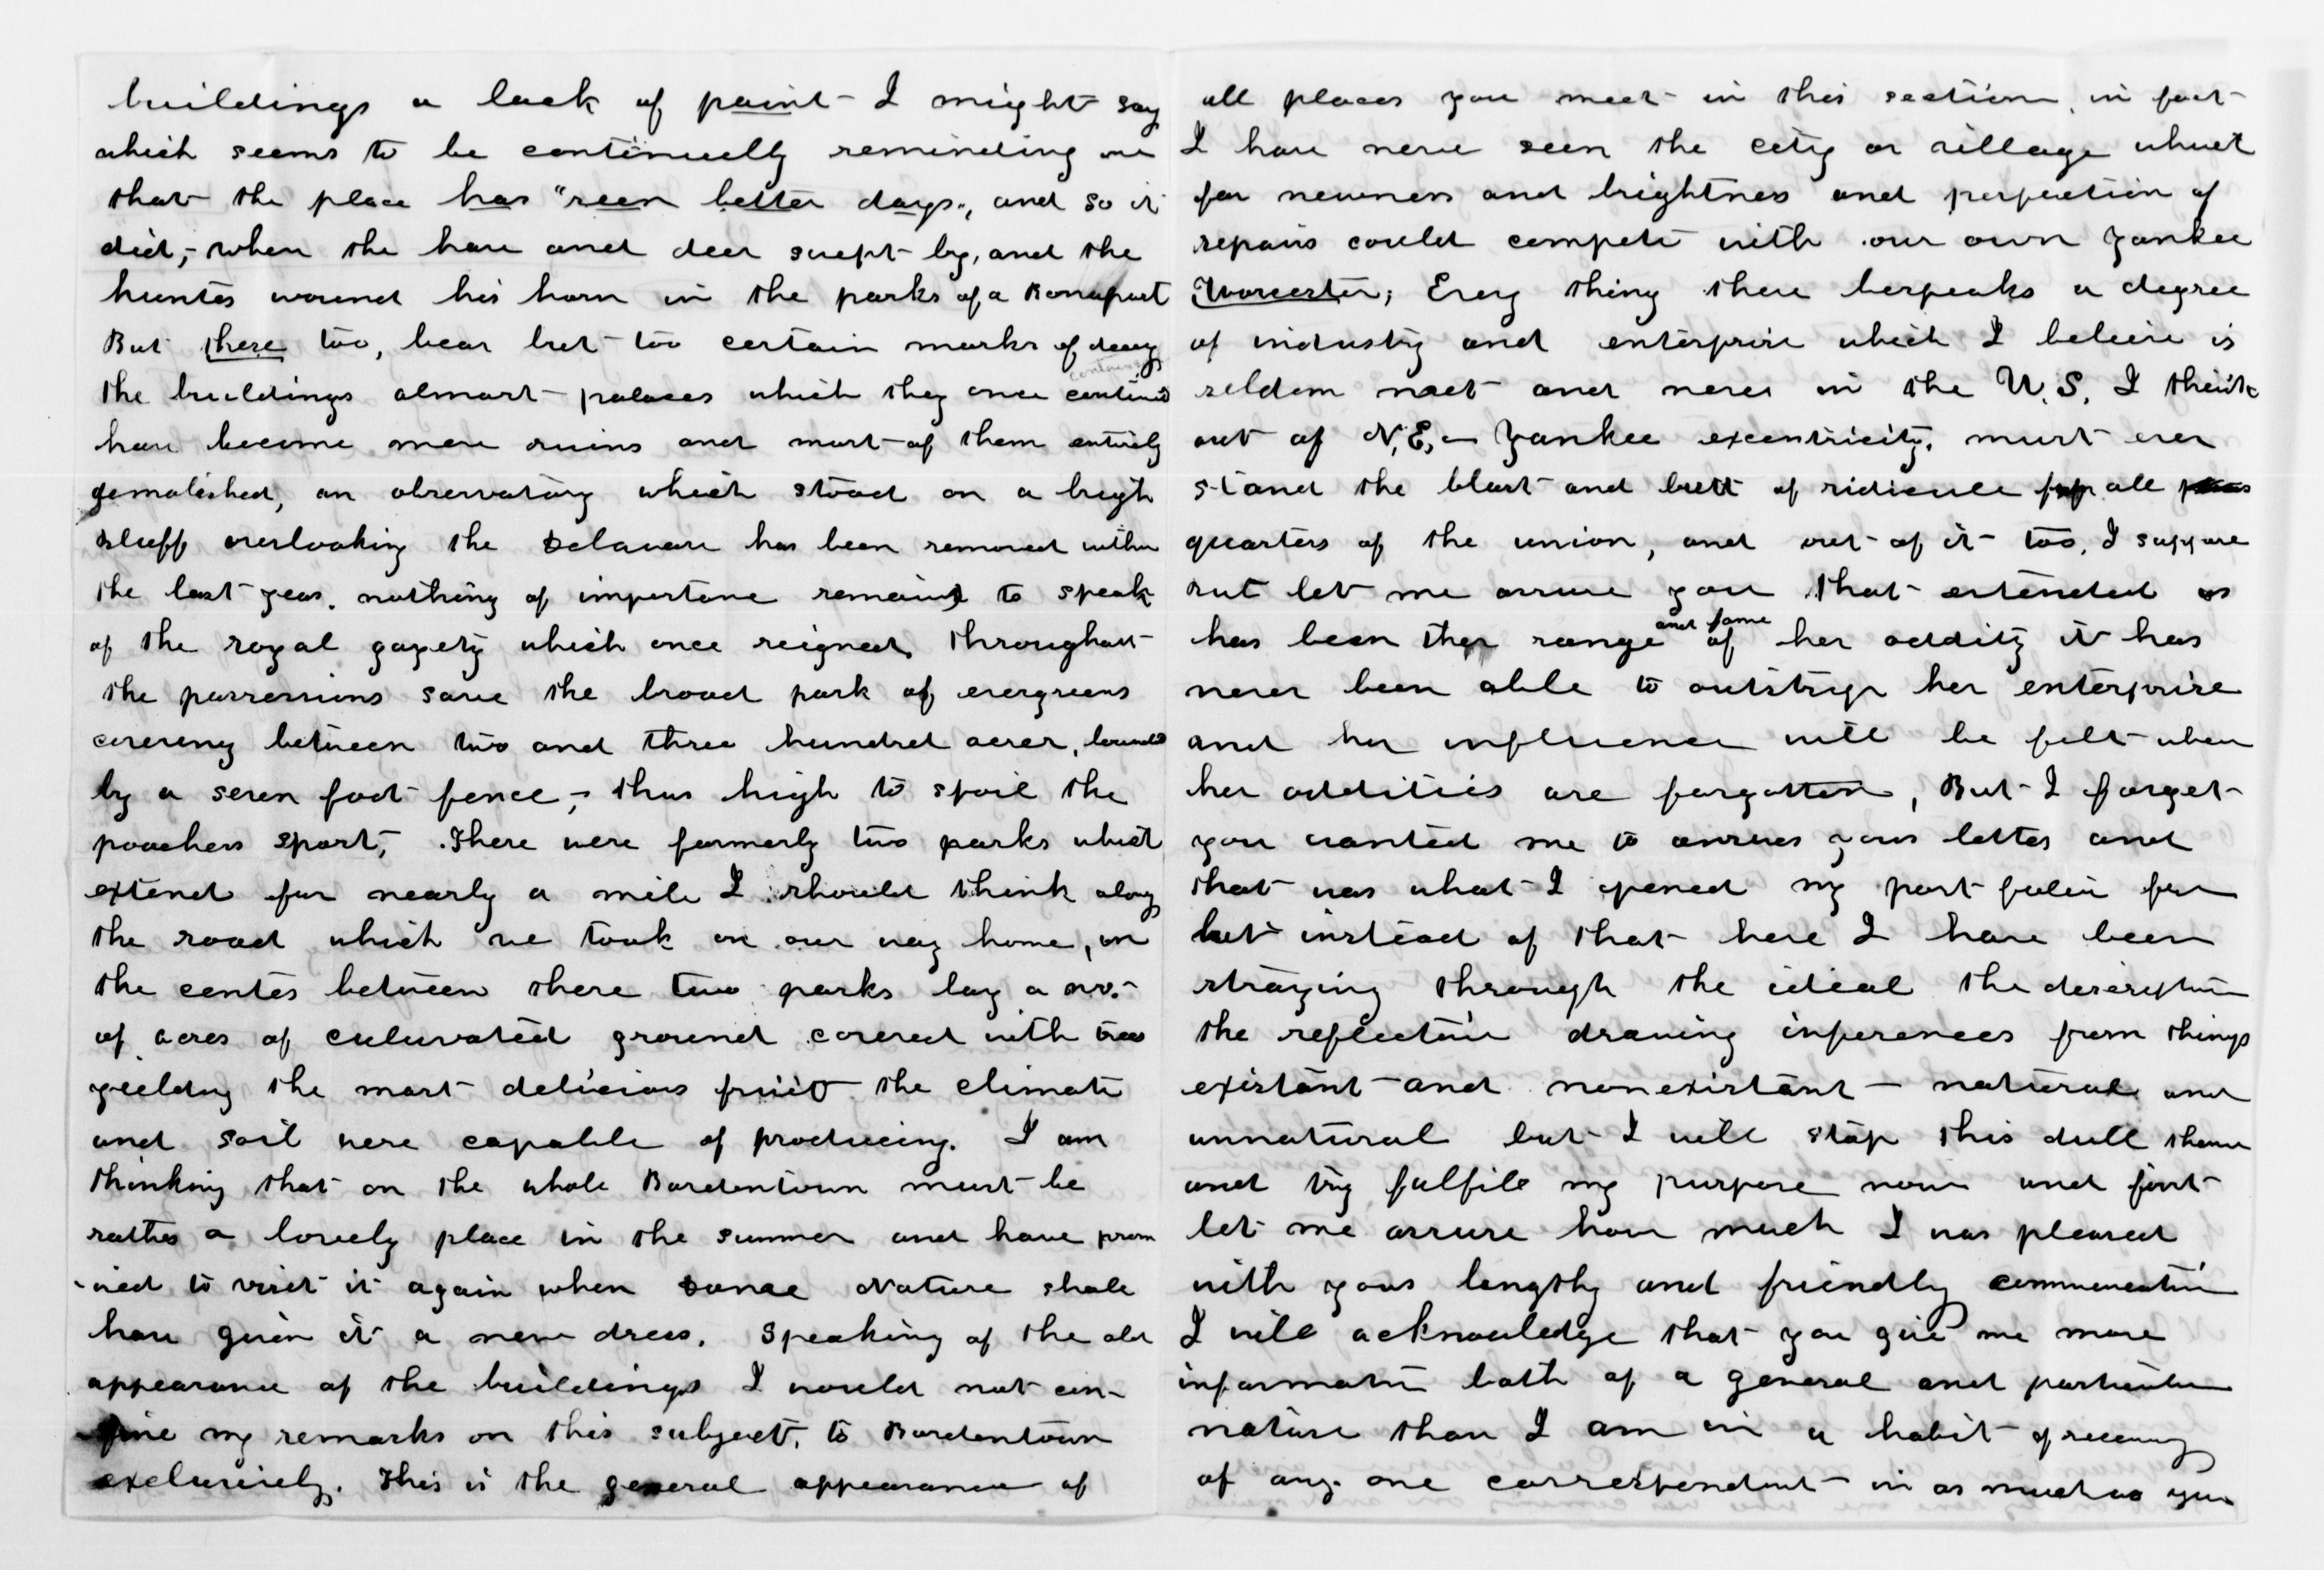 buildings a lack of paint - I might say
which seems to be continually reminding one
that the place has "seen better days", and so it
did, - when the hare and deer swept by, and the
hunter wound his horn in the parks of a Bonapart
But these too, bear but too certain marks of decay
the buildings almost palaces which they once contained
have become mere ruins and most of them entirely
demolished, an observatory which stood on a high
Bluff overlooking the Delaware has been removed within
the last year. nothing of importane remains to speak
of the royal gayety which once reigned throughout
the possessions save the broad park of evergreens
covering between two and three hundred acres, bounded
by a seven foot fence, - thus high to spoil the
poachers sport, - There were formerly two parks which
extend for nearly a mile I should think along
the road which we took on our way home, in
the center between these two parks lay a no.
of acres of culuvated ground covered with trees
yielding the most delicious fruit the climate
and soil were capable of producing. I am
thinking that on the whole Bordentown must be
rather a lovely place in the summer and have prom
-ised to visit it again when Dame Nature shall
have given it a new dress. Speaking of the old
appearance of the buildings I would not con-
fine my remarks on this subject, to Bordentown
exclusively. This is the general appearance of
all places you meet in this section, in fact
I have never seen the city or village which
for newness and brightness and perfection of
repairs could compete with our own Yankee
Worcester; Every thing there bespeaks a degree
of industry and enterprise which I believe is
seldom met and never in the U.S. I think
out of N.E. - Yankee excentricity, must ever
stand the blast and butt of ridicule from all
quarters of the union, and out of it too, I suppose
but let me assure you that extended as
has been the range and fame of her oddity it has
never been able to outstrip her enterprise
and her influence will be felt when
her oddities are forgotten, But I forget
you wanted me to answer your letter and
that was what I opened my port folio for
but instead of that here I have been
straying through the ideal the description
the reflection drawing inferences from things
existant and nonexistant - natural and
unnatural but I will stop this dull theme
and try fulfile my purpose now and first
let me assure how much I was pleased
with your lengthy and friendly communication
I will acknowledge that you give me more
information both of a general and particular
nature than I am in a habit of receiving
of any one correspondent in as much as you